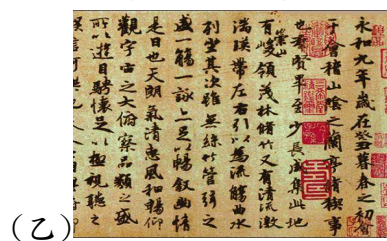 永和九年歲在癸丑暮春之初會
于會稽山陰之蘭亭脩稧事
也羣賢畢至少長咸集此地
有崇山峻領茂林脩竹又有清流激
湍暎帶左右引以為流觴曲水
列坐其次雖無絲竹管弦之
盛一觴一詠亦足以暢叙幽情
是日也天朗氣清惠風和暢仰
觀宇宙之大俯察品類之盛
所以遊目騁懷足以極視聽之
娛信可樂也
(乙)